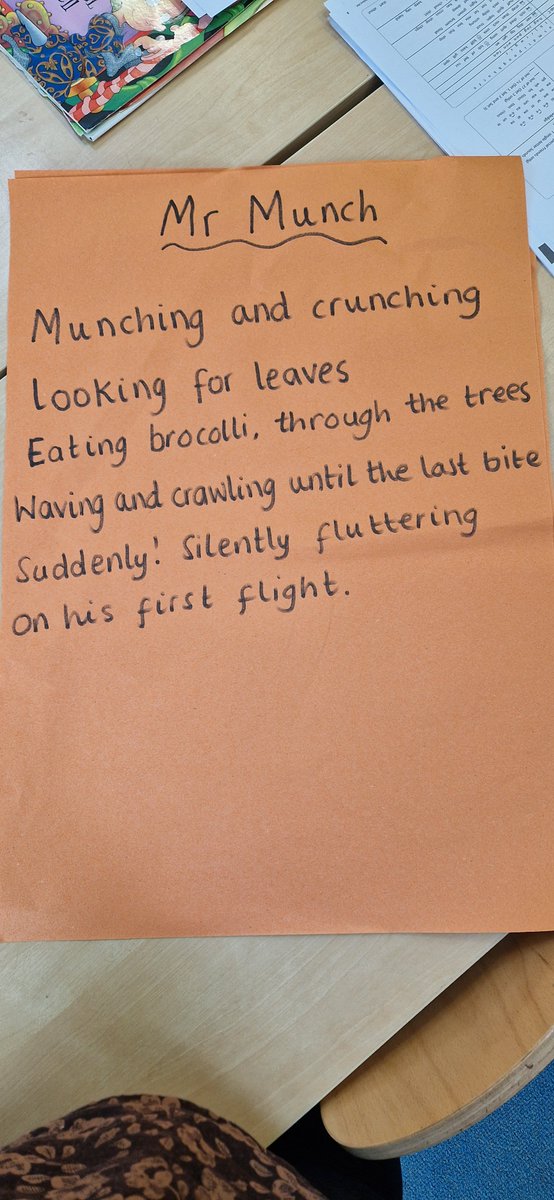 Mr Munch
Munching and crunching
looking for leaves
Eating brocolli, through the trees
Waving and crawling until the last bite
Suddenly! Silently fluttering
on his first flight.